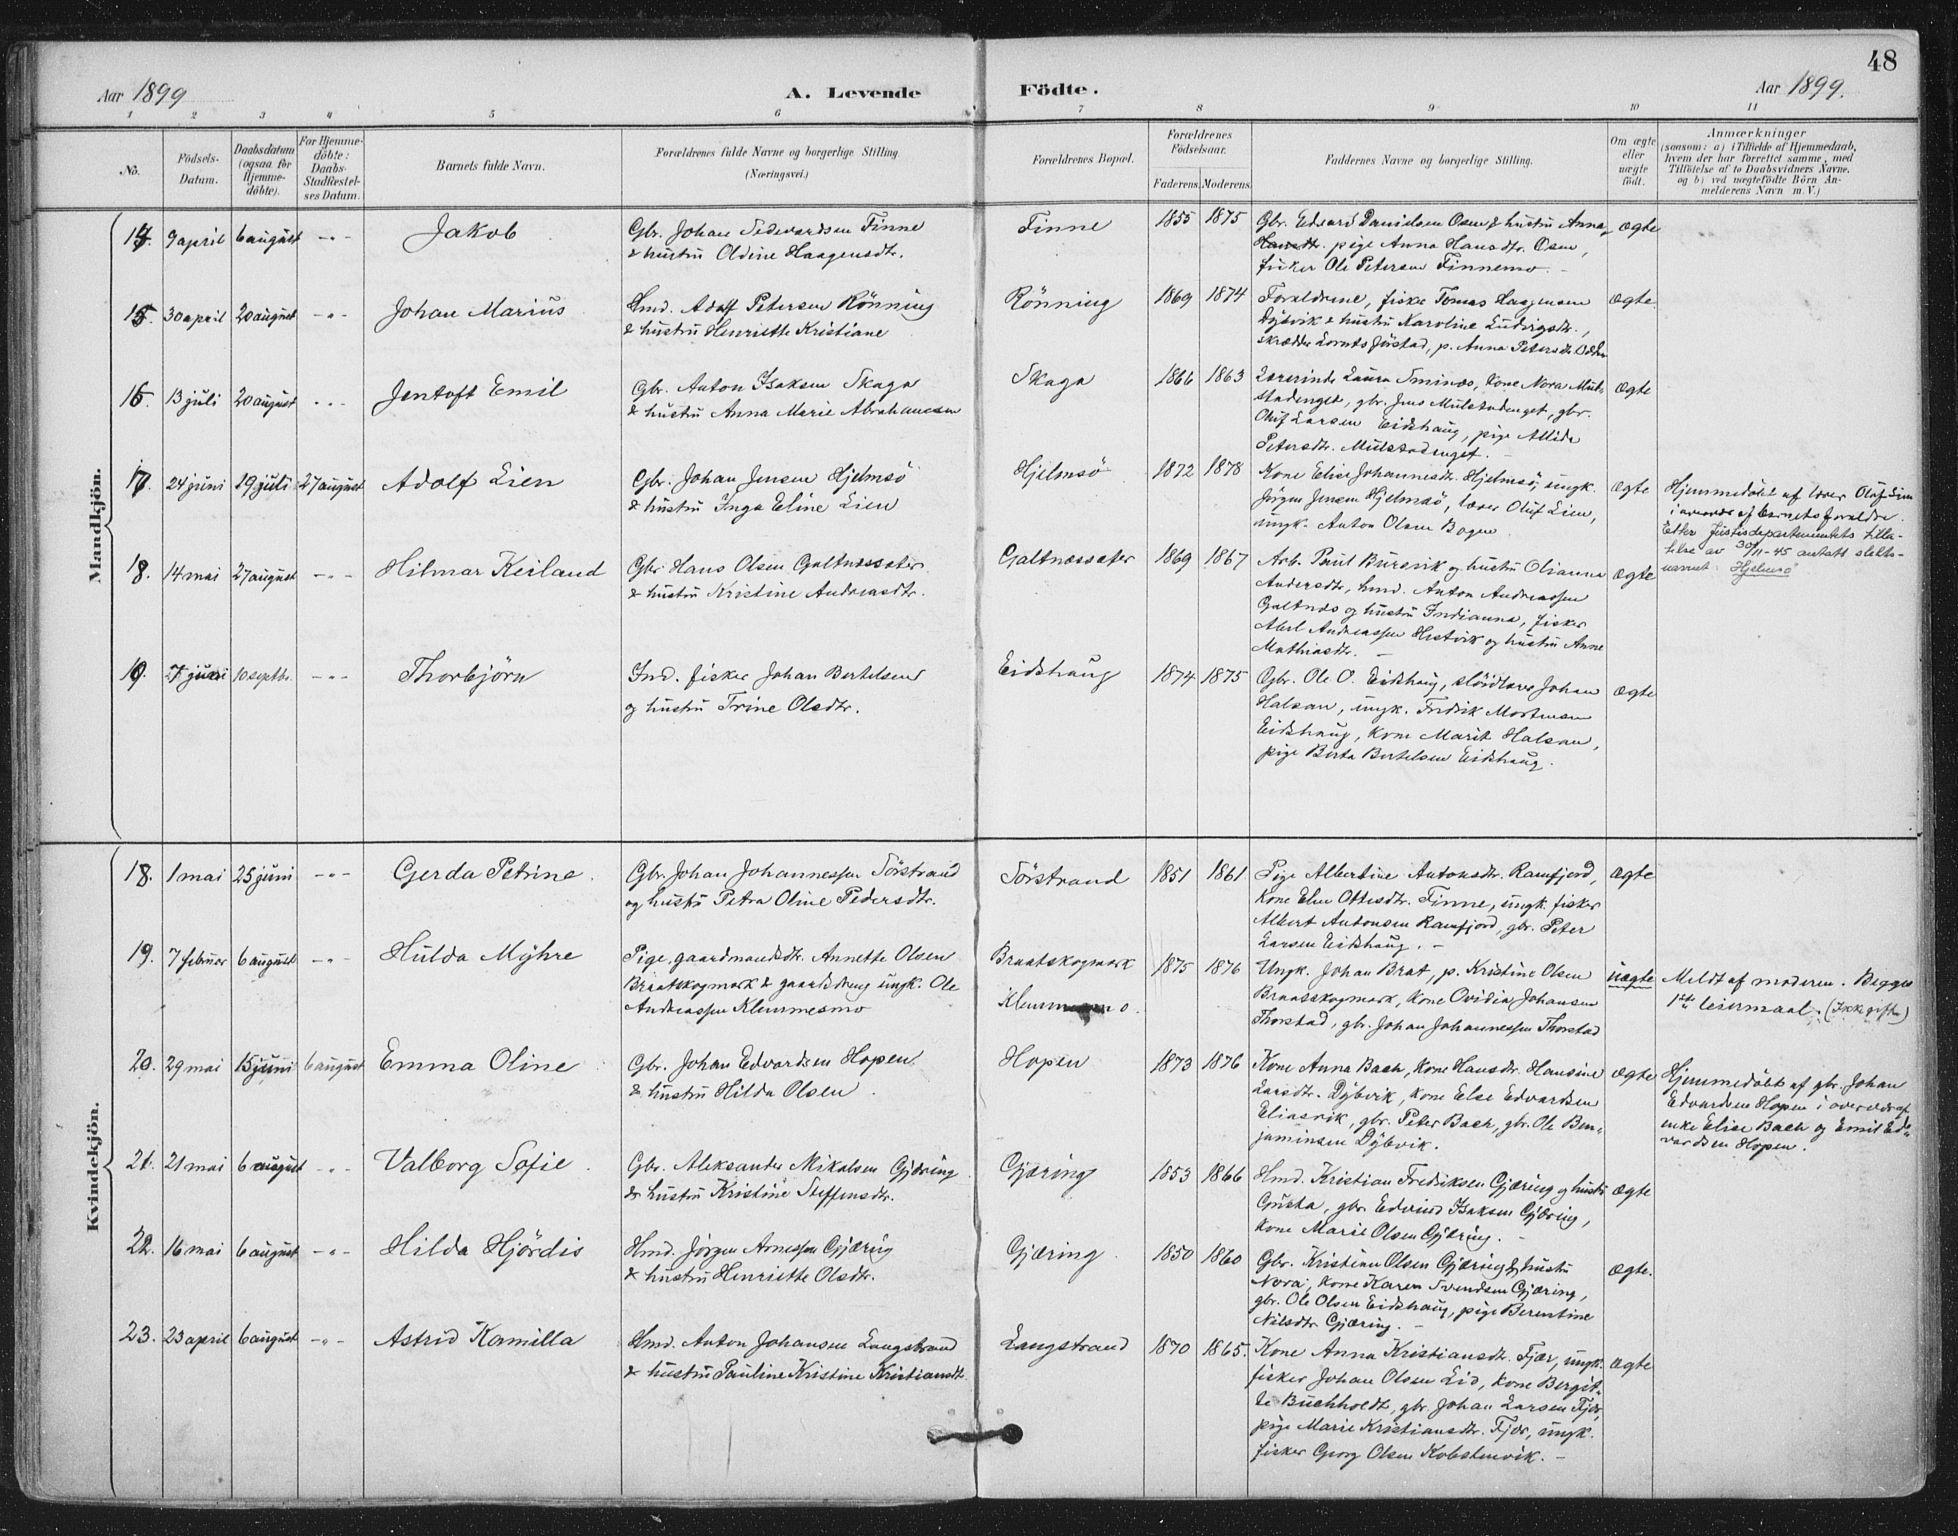 48
Aar 1899
A. Levende
Födte.
Aar 1899.
1 2 3 4 5 6 7 8 9 10 11
No.
Födsels-
Datum.
Daabsdatum
(ogsaa for
Hjemme-
döbte).
For Hjemme-
döbte:
Daabs-
Stadfæstel-
ses Datum.
Barnets fulde Navn.
Forældrenes fulde Navne og borgerlige Stilling
(Næringsvei.)
Forældrenes Bopæl.
Forældrenes
Födselsaar.
Faderens. Moderens.
Faddernes Navne og borgerlige Stilling.
Om ægte
eller
uægte
födt.
Anmærkninger
(saasom: a) i Tilfælde af Hjemmedaab,
hvem der har forrettet samme, med
Tilföielse af to Daabsvidners Navne.
og b) ved uægtefödte Börn An-
melderens Navn m. V.)
Mandkjön.
14. 9 april 6 august -"- Jakob
Gbr. Johan Sidevardsen Finne
& hustru Oldine Haagensdtr.
Finne 1855 1875
Gbr. Edvard Danielsen Osen & hustru Anna
Hansdtr. pige Anna Hansdtr. Osen,
fisker Ole Petersen Finnemo. -
ægte
15. 30 april 20 august -"- Johan Marius
Hmd. Adolf Petersen Rönning
& hustru Henriette Kristiane
Rönning 1869 1874
Forældrene, fisker Tomas Haagensen
Dybvik & hustru Karoline Ludvigsdtr.,
skrædder Lornts Jörstad, p. Anna Petersdtr. Odden
ægte
16. 13 juli 20 august -"- Jentoft Emil
Gbr. Anton Isaksen Skaga
& hustru Anna Marie Abrahamsen
Skaga 1866 1863
Lærerinde Laura Sminæs, kone Nora Mul-
stadenget, gbr. Jens Mulstadenget, gbr.
Oluf Larsen Eidshaug, pige Allida
Petersdtr. Mulstadenget. -
ægte
17. 24 juni 19 juli 27 august Adolf Lien
Gbr. Johan Jensen Hjelmsö
& hustru Inga Eline Lien
Hjelmsö 1872 1878
Kone Elise Johannesdtr. Hjelmsö, ungk.
Jörgen Jensen Hjelmsö, lærer Oluf Lien,
ungk. Anton Olsen Bogen
ægte
Hjemmedöbt af lærer Oluf Lien
i overvær af barnets forældre.
Etter Justisdepartementets tilla-
telse av 30/11-45 antatt slekts-
navnet: Hjelmsö
18. 14 mai 27 august -"- Hilmar Keiland
Gbr. Hans Olsen Galtnæssæter
& hustru Kristine Andreasdtr.
Galtnæssæter 1869 1867
Arb. Paul Bursvik og hustru Olianna
Andersdtr., hmd. Anton Andreassen
Galtnæs og hustru Indianna, fisker
Abel Andreassen Hestvik og hustru Anne
Mathiasdtr. -
ægte
19. 7 juni 10 septbr. -"- Thorbjörn
Ind. fisker Johan Bertelsen
og hustru Trine Olsdtr.
Eidshaug 1874 1875
Gbr. Ole O. Eidshaug, slöidlærer Johan
Halsan, ungk. Fredrik Mortensen
Eidshaug, kone Marit Halsan,
pige Berta Bertelsen Eidshaug.
ægte
Kvindekjön.
18. 1 mai 25 juni -"- Gerda Petrine.
Gbr. Johan Johannessen Sörstrand
og hustru Petra Oline Pedersdtr.
Sörstrand 1851 1861
Pige Albertine Antonsdtr. Ramfjord,
kone Elen Ottesdtr. Finne, ungk. fisker
Albert Antonsen Ramfjord, gbr. Peter
Larsen Eidshaug. -
ægte
19. 7 februar 6 august -"- Hulda Myhre
Pige, gaardmandsdtr. Annette Olsen
Braatskogmark & gaarddreng ungk. Ole
Andreassen Klemmesmo
Braatskogmark
Klemmesmo. 1875 1876
Ungk. Johan Brat, p. Kristine Olsen
Braatskogmark, kone Ovidia Johansen
Thorstad, gbr. Johan Johannessen Thorstad
uægte
Meldt af moderen. Begges
1ste leiermaal. (Ikke gifte)
20. 29 mai 15 juni 6 august Emma Oline
Gbr. Johan Edvardsen Hopen
& hustru Hilda Olsen.
Hopen 1873 1876
Kone Anna Bach, kone Hansdtr. Hansine
Larsdtr. Dybvik, kone Else Edvardsen
Eliasvik, gbr. Peter Bach, gbr. Ole Ben-
jaminsen Dybvik.
ægte
Hjemmedöbt af gbr. Johan
Edvardsen Hopen i overvær af
enke Elise Bach og Emil Ed-
vardsen Hopen.
21. 21 mai 6 august -"- Valborg Sofie.
Gbr. Aleksander Mikalsen Gjæring
& hustru Kristine Steffensdtr.
Gjæring 1853 1866
Hmd. Kristian Fredriksen Gjæring og hustru
Gusta, gbr. Edvind Isaksen Gjæring,
kone Marie Olsen Gjæring. -
ægte
22. 16 mai 6 august -"- Hilda Hjördis
Hmd. Jörgen Arnessen Gjæring
& hustru Henriette Olsdtr.
Gjæring. 1850 1860
Gbr. Kristian Olsen Gjæring & hustru
Nora, kone Karen Svendsen Gjæring,
gbr. Ole Olsen Eidshaug, pige Berentine
Nilsdtr. Gjæring. -
ægte.
23. 23 april 6 august -"- Astrid Kamilla
Hmd. Anton Johansen Langstrand
& hustru Pauline Kristine Kristiansdtr.
Langstrand 1870 1865.
Kone Anna Kristiansdtr. Fjær, ungk.
fisker Johan Olsen Eid, kone Bergit-
te Buchholdt, gbr. Johan Larsen Fjær,
pige Marie Kristiansdtr. Fjær, ungk.
fisker Georg Olsen Kobstenvik. -
ægte